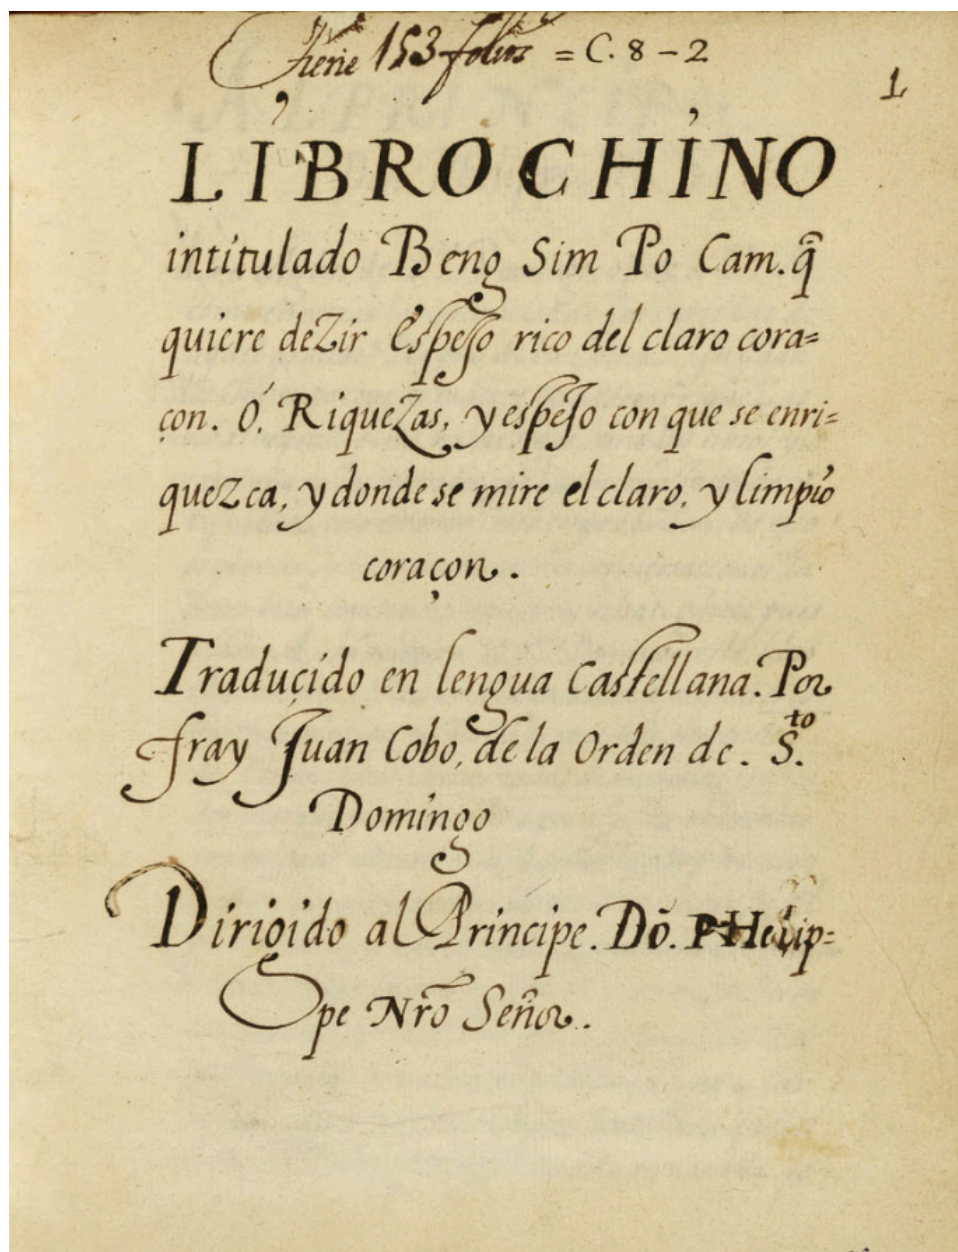 Tiene 153 folios = C. 8 - 2
1
LIBRO CHINO
intitulado Beng Sim Po Cam. q̃
quiere deZir Espejo rico del claro cora=
çon. Ó, RiqueZas, y espeJo con que se enri=
queZca, y donde se mire el claro, y limpio
coraçon.
Traducido en lengua Castellana. Por
fray Juan Cobo, de la Orden de. S.to
Domingo
Dirigido al Principe. Dō. PHelip=
pe Nr̃o Señor.